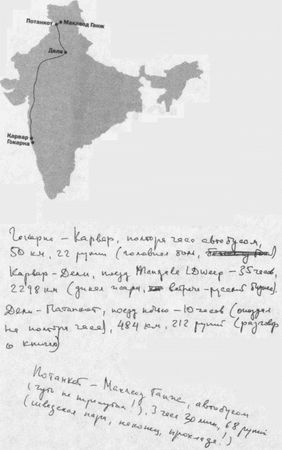 Потанкот
Маклеод Ганж
Дели
Карвар
Гокарна
Гокарна – Карвар, полтора часа автобусом,
50 км, 22 рупии (головная боль,
Карвар – Дели, поезд Mangala LDweep – 35 часов,
2298 км (дикая жара, встреча – русский
Дели – Патанкот, поезд ночью – 10 часов (опоздал
на полтора часа), 484 км, 212 рупий (разговор
о книгах)
Потанкот – Маклеод Ганж, автобусом
(чуть не 3 часа 30 мин, 68 рупий
(шведская пара, наконец, прохлада!)